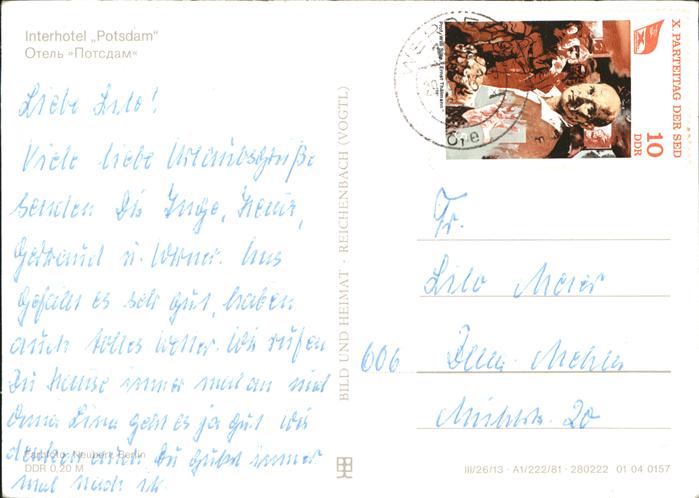 Interhotel „Potsdam"
Отель »Потсдам«
Liebe Lilo!
Viele liebe Urlaubsgrüße
senden Dir Inge, Heinz,
Gertraud u. Werner. Uns
gefällt es sehr gut, haben
auch tolles Wetter. Wir rufen
zu Hause immer mal an und
Oma Lina geht es ja gut. Wir
denken auch Du gehst immer
mal nach ihr.
Farbfoto: Neubert, Berlin
DDR 0,20 M
BILD UND HEIMAT · REICHENBACH (VOGTL)
X. PARTEITAG DER SED
10
DDR
Fr.
Lilo Meier
606 Zella-Mehlis
20
III/26/13 · A1/222/81 · 280222 01 04 0157